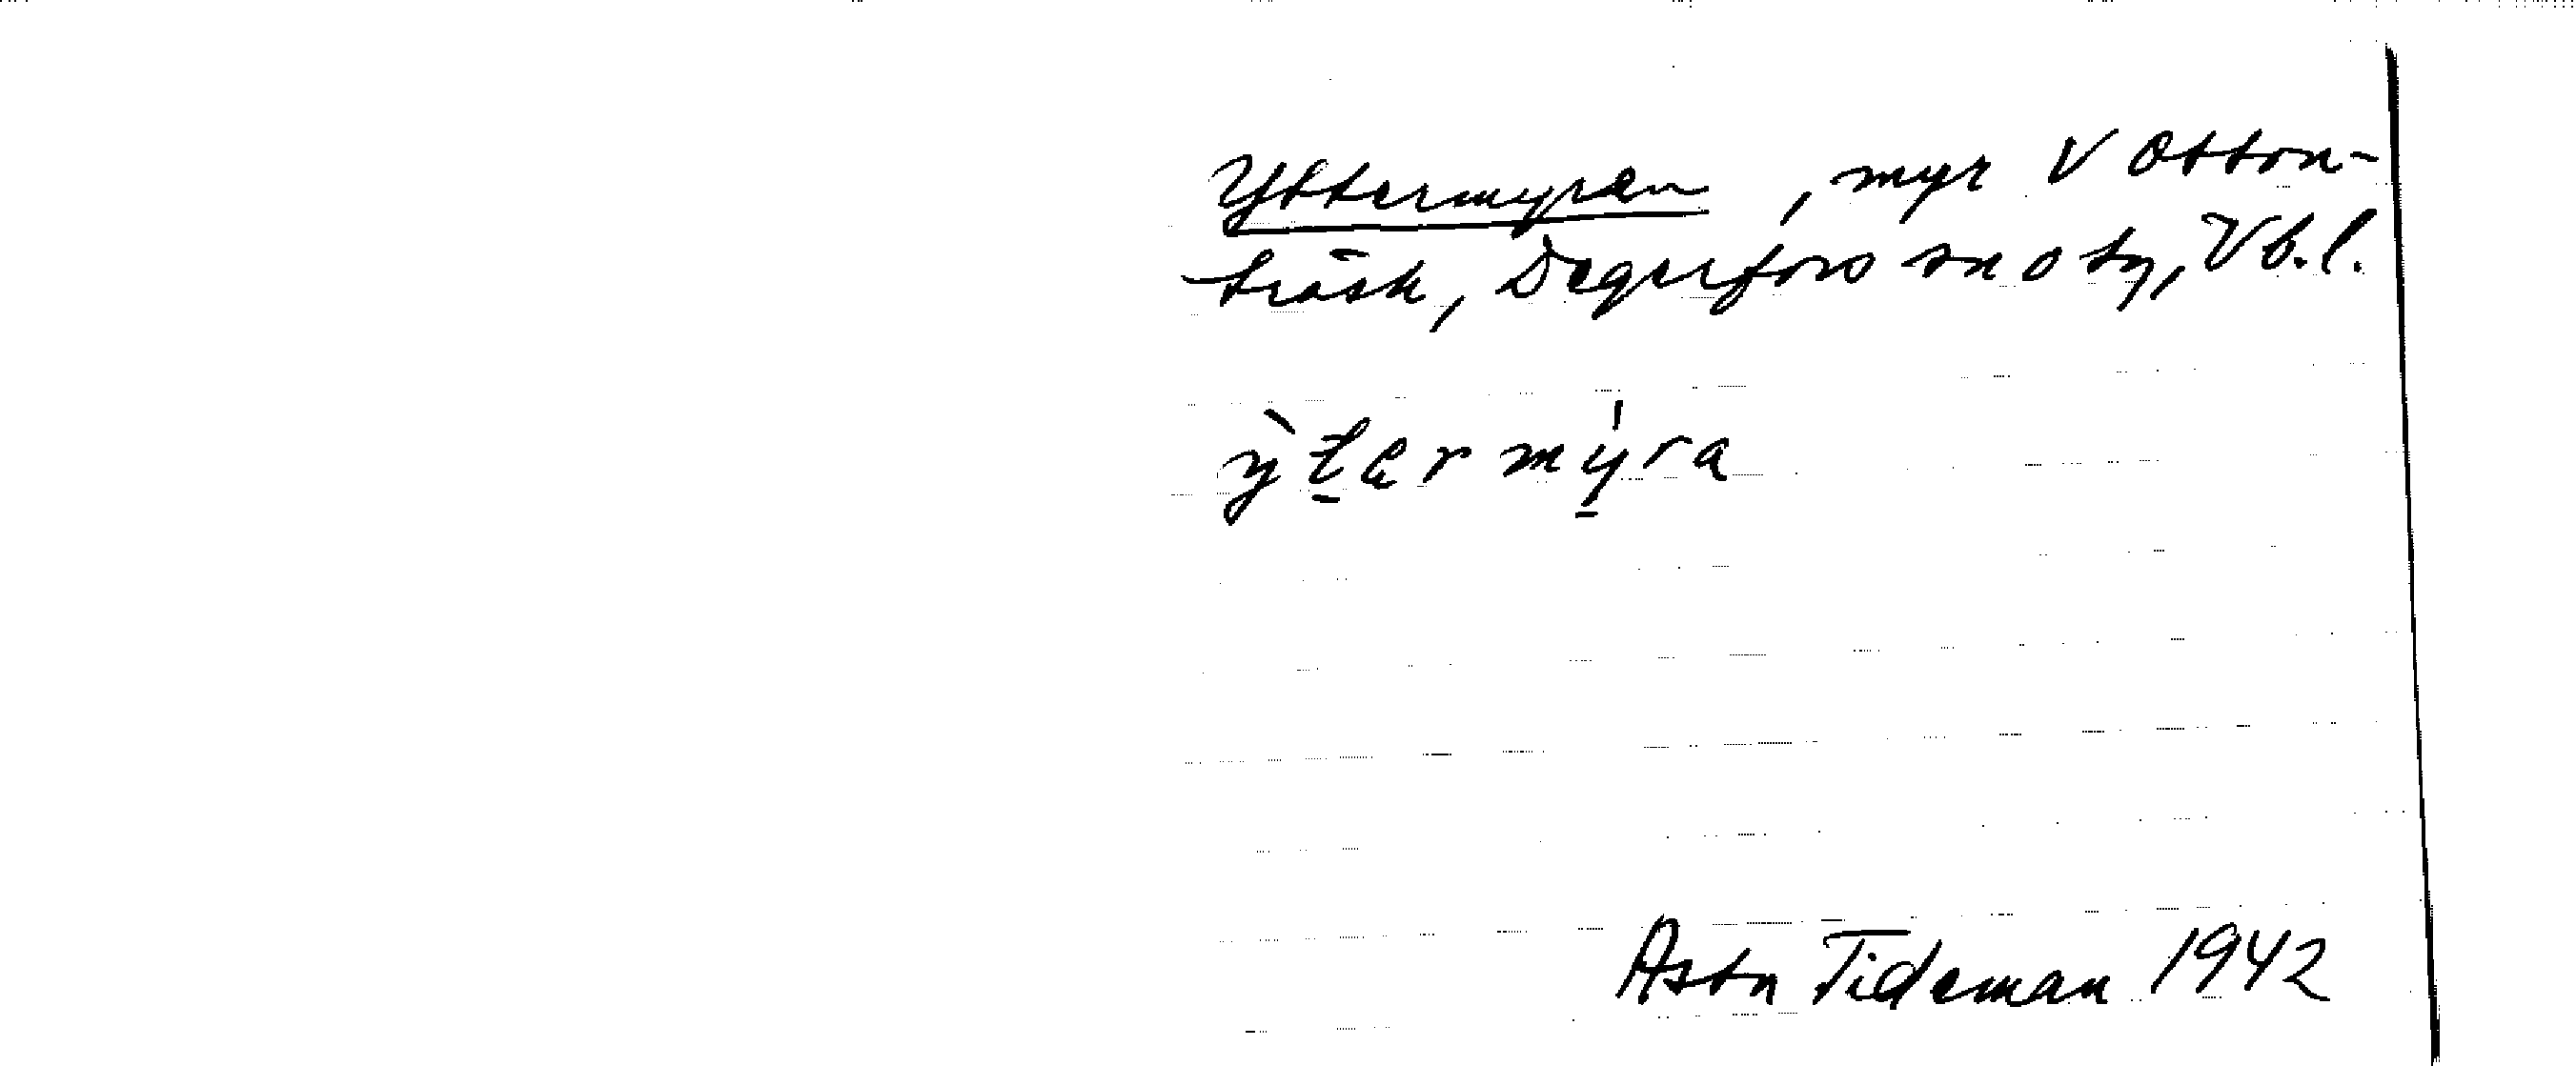 Yttermyran, myr V Otton-
träsk, Degerfors sn o tg, Vb.l.
ỳt̲er mý̲ra
Astn Tideman 1942